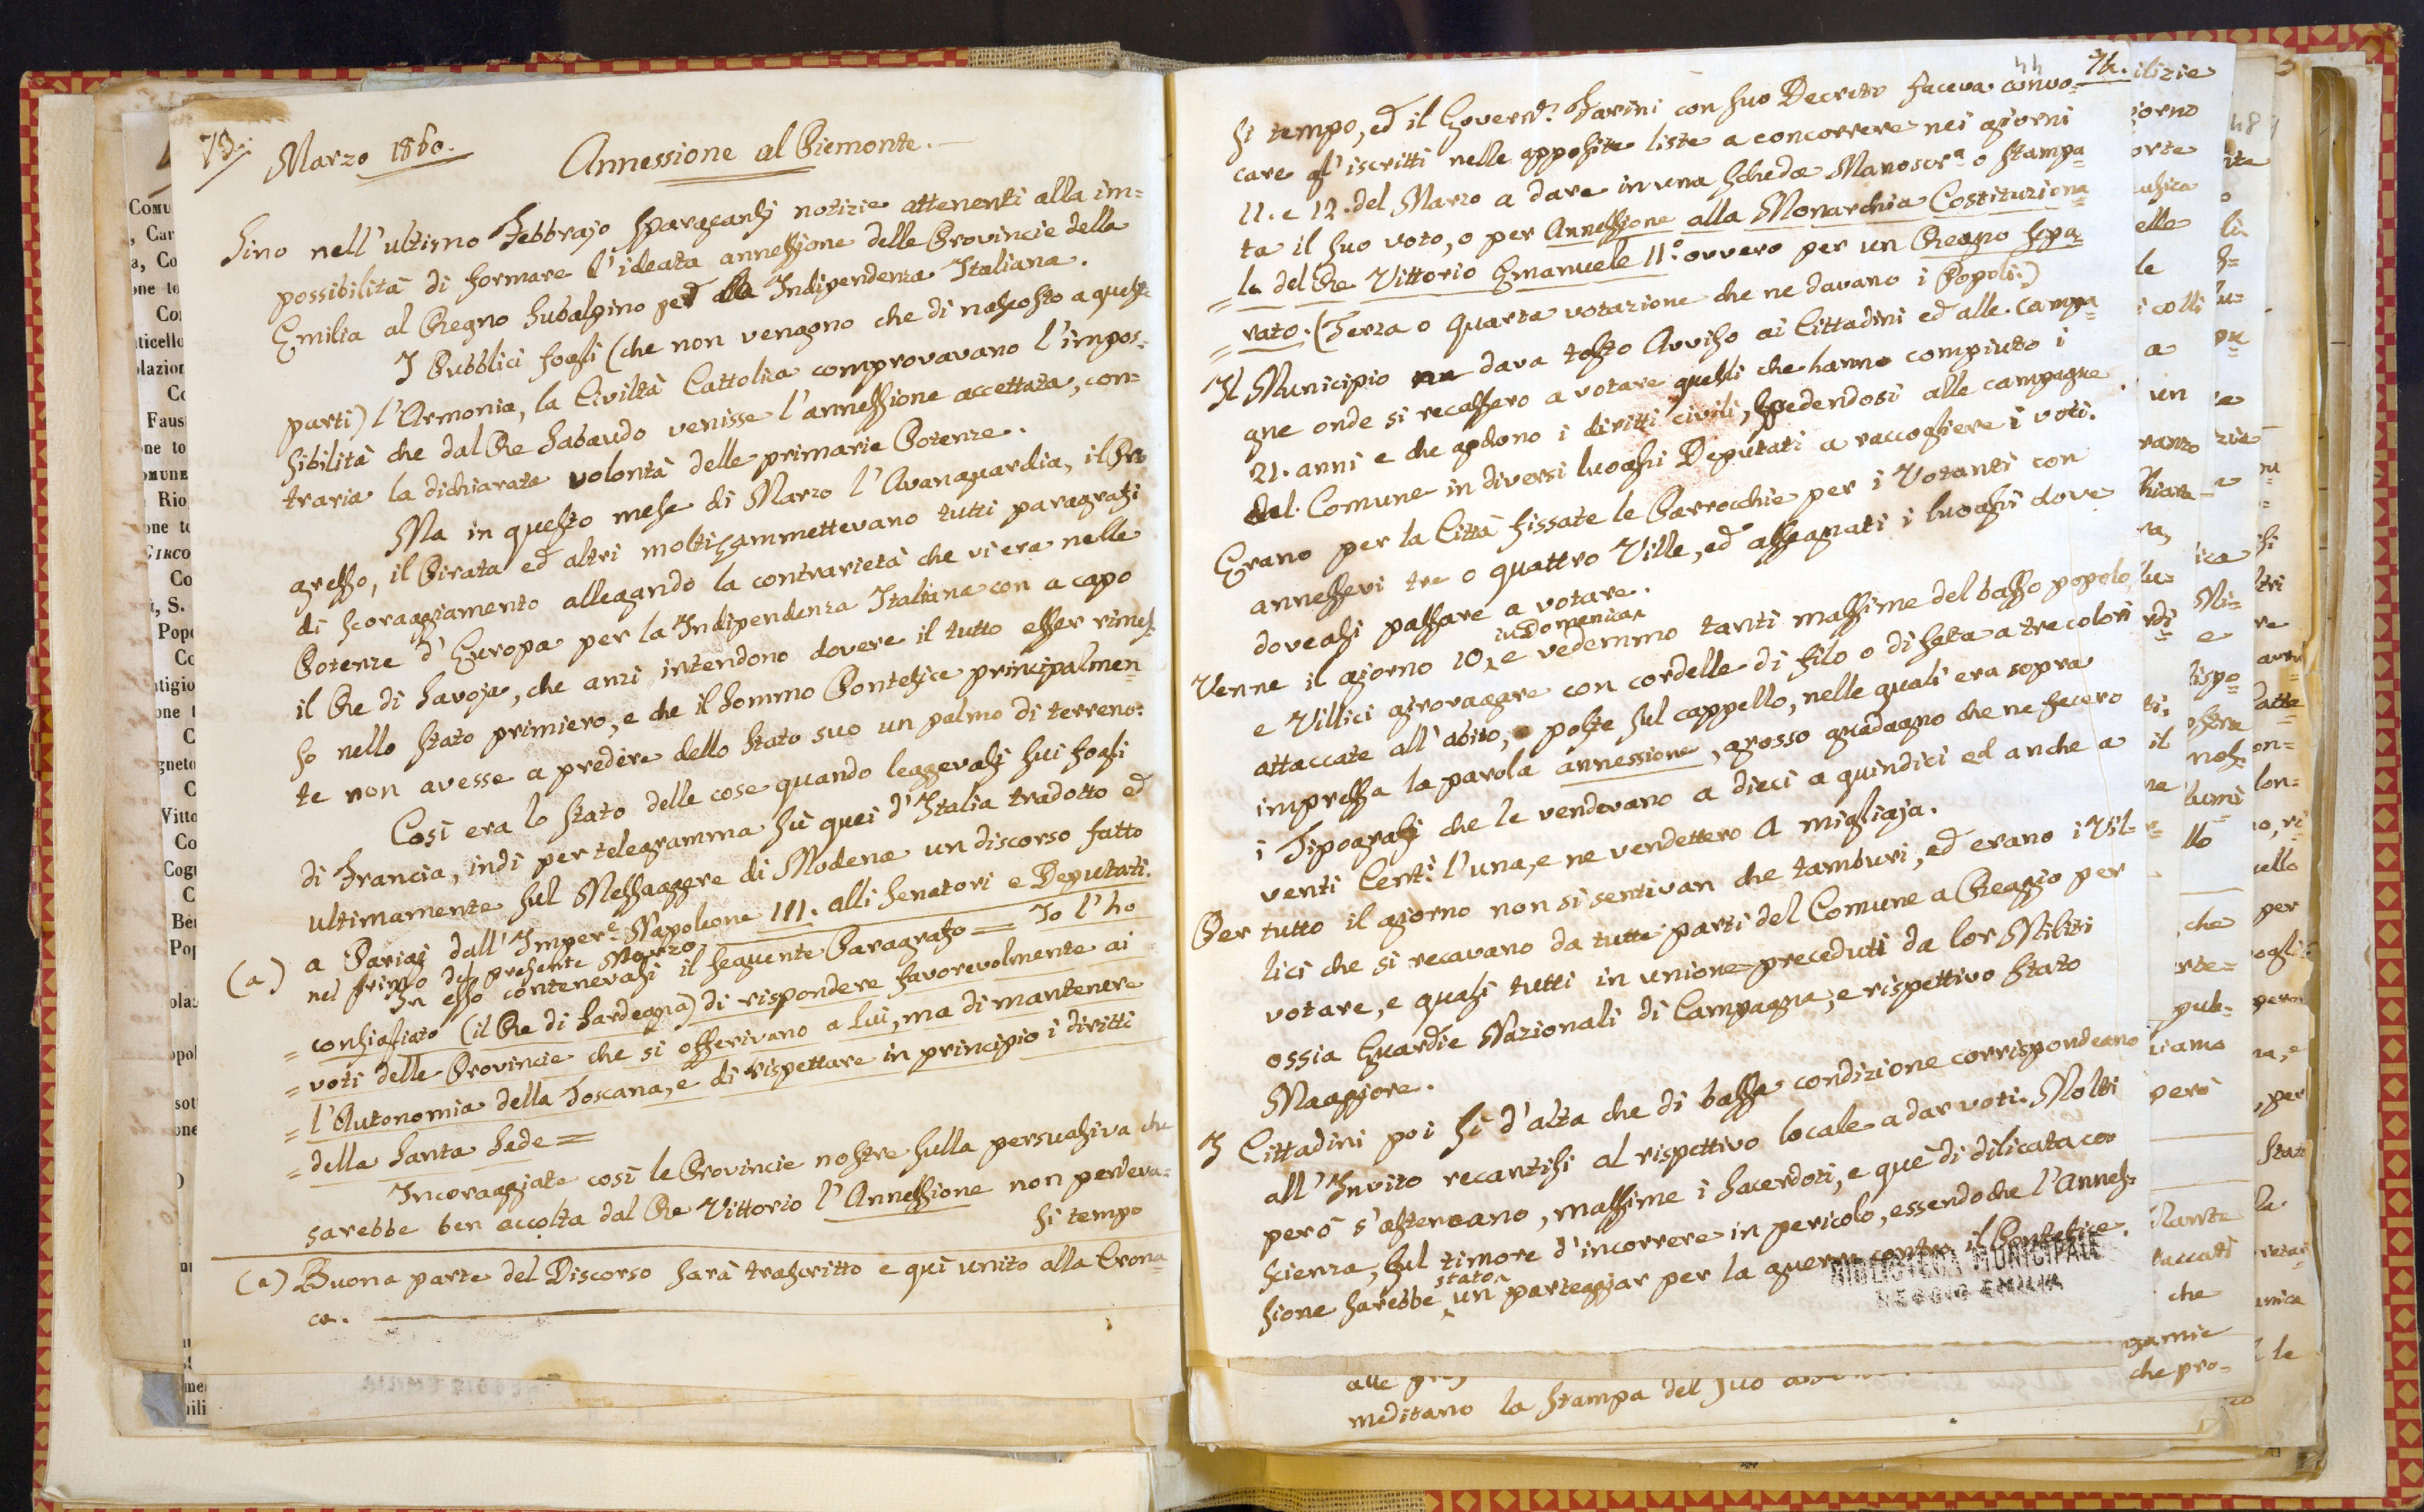 73.
Marzo 1860.
Annessione al Piemonte.
Sino nell'ultimo Febbrajo spargeansi notizie attenenti alla im=
possibilità di formare l'ideata annessione delle Provincie della
Emilia al Regno Subalpino per alla Indipendenza Italiana.
I Pubblici fogli (che non vengono che di nascosto a queste
parti) l'Armonia, la Civiltà Cattolica comprovavano l'impos=
sibilità che dal Re Sabaudo venisse l'annessione accettata, con=
traria la dichiarata volontà delle primarie Potenze.
Ma in questo mese di Marzo l'Avanguardia, il Pro
gresso, il Pirata ed altri molti, ammettevano tutti paragrafi
di scoraggiamento allegando la contrarietà che vi era nelle
Potenze d'Europa per la Indipendenza Italiana con a capo
il Re di Savoja, che anzi intendono dovere il tutto esser rimes=
so nello stato primiero, e che il Sommo Pontefice principalmen=
te non avesse a predere dello Stato suo un palmo di terreno:
Così era lo stato delle cose quando leggevasi sui fogli
di Francia, indi per telegramma sù quei d'Italia tradotto ed
ultimamente sul Messaggere di Modena un discorso fatto
(a) a Parigi dall'Imper.e Napoleone III. alli Senatori e Deputati.
nel primo del presente Marzo
In esso contenevasi il seguente Paragrafo = Io l'ho
= consigliato (il Re di Sardegna) di rispondere favorevolmente ai
= voti delle Provincie che si offerivano a Lui, ma di mantenere
= l'Autonomia della Toscana, e di rispettare in principio i diritti
= della Santa Sede =
Incoraggiate così le Provincie nostre sulla persuasiva che
sarebbe ben accolta dal Re Vittorio l'Annessione non perdeva=
si tempo
(a) Buona parte del Discorso sarà trascritto e quì unito alla Crona=
ca.
44
74.
si tempo, ed il Govern.e Farini con suo Decreto faceva convo=
care gl'iscritti nelle apposite liste a concorrere nei giorni
11. e 12. del Marzo a dare in una scheda Manoscr.a o Stampa=
ta il suo voto, o per Annessione alla Monarchia Costituziona=
= le del Re Vittorio Emanuele II.° ovvero per un Regno sepa=
= rato. (Terza o quarta votazione che ne davano i Popoli.)
Il Municipio dava tosto Avviso ai Cittadini ed alle Campa=
gne onde si recassero a votare quelli che hanno compiuto i
21. anni e che godono i diritti civili, spedendosi alle campagne
del Comune in diversi luoghi Deputati a raccogliere i voti.
Erano per la Città fissate le Parrocchie per i Votanti con
annessevi tre o quattro Ville, ed assegnati i luoghi dove
doveasi passare a votare.
in Domenica
Venne il giorno 10, e vedemmo tanti massime del basso popolo,
e Villici girovagare con cordelle di filo o di seta a tre colori
attaccate all'abito, o poste sul cappello, nelle quali era sopra
impressa la parola annessione, grosso guadagno che ne fecero
i Tipografi che le vendevano a dieci a quindici ed anche a
venti Cent.i l'una, e ne vendettero a migliaja.
Per tutto il giorno non si sentivan che tamburi, ed erano i Vil=
lici che si recavano da tutte parti del Comune a Reggio per
votare, e quasi tutti in unione preceduti da lor Militi
ossia Guardie Nazionali di Campagna, e rispettivo Stato
Maggiore.
I Cittadini poi sì d'alta che di bassa condizione corrispondeano
all'Invito recantisi al rispettivo locale a dar voti. Molti
però s'asteneano, massime i Sacerdoti, e que' di dilicata co=
scienza, sul timore d'incorrere in pericolo, essendoche l'Annes=
sione sarebbe stato un parteggiar per la guerra contro il Pontefice.
BIBLIOTECA MUNICIPALE
REGGIO EMILIA
meditano la stampa del suo
che pro=